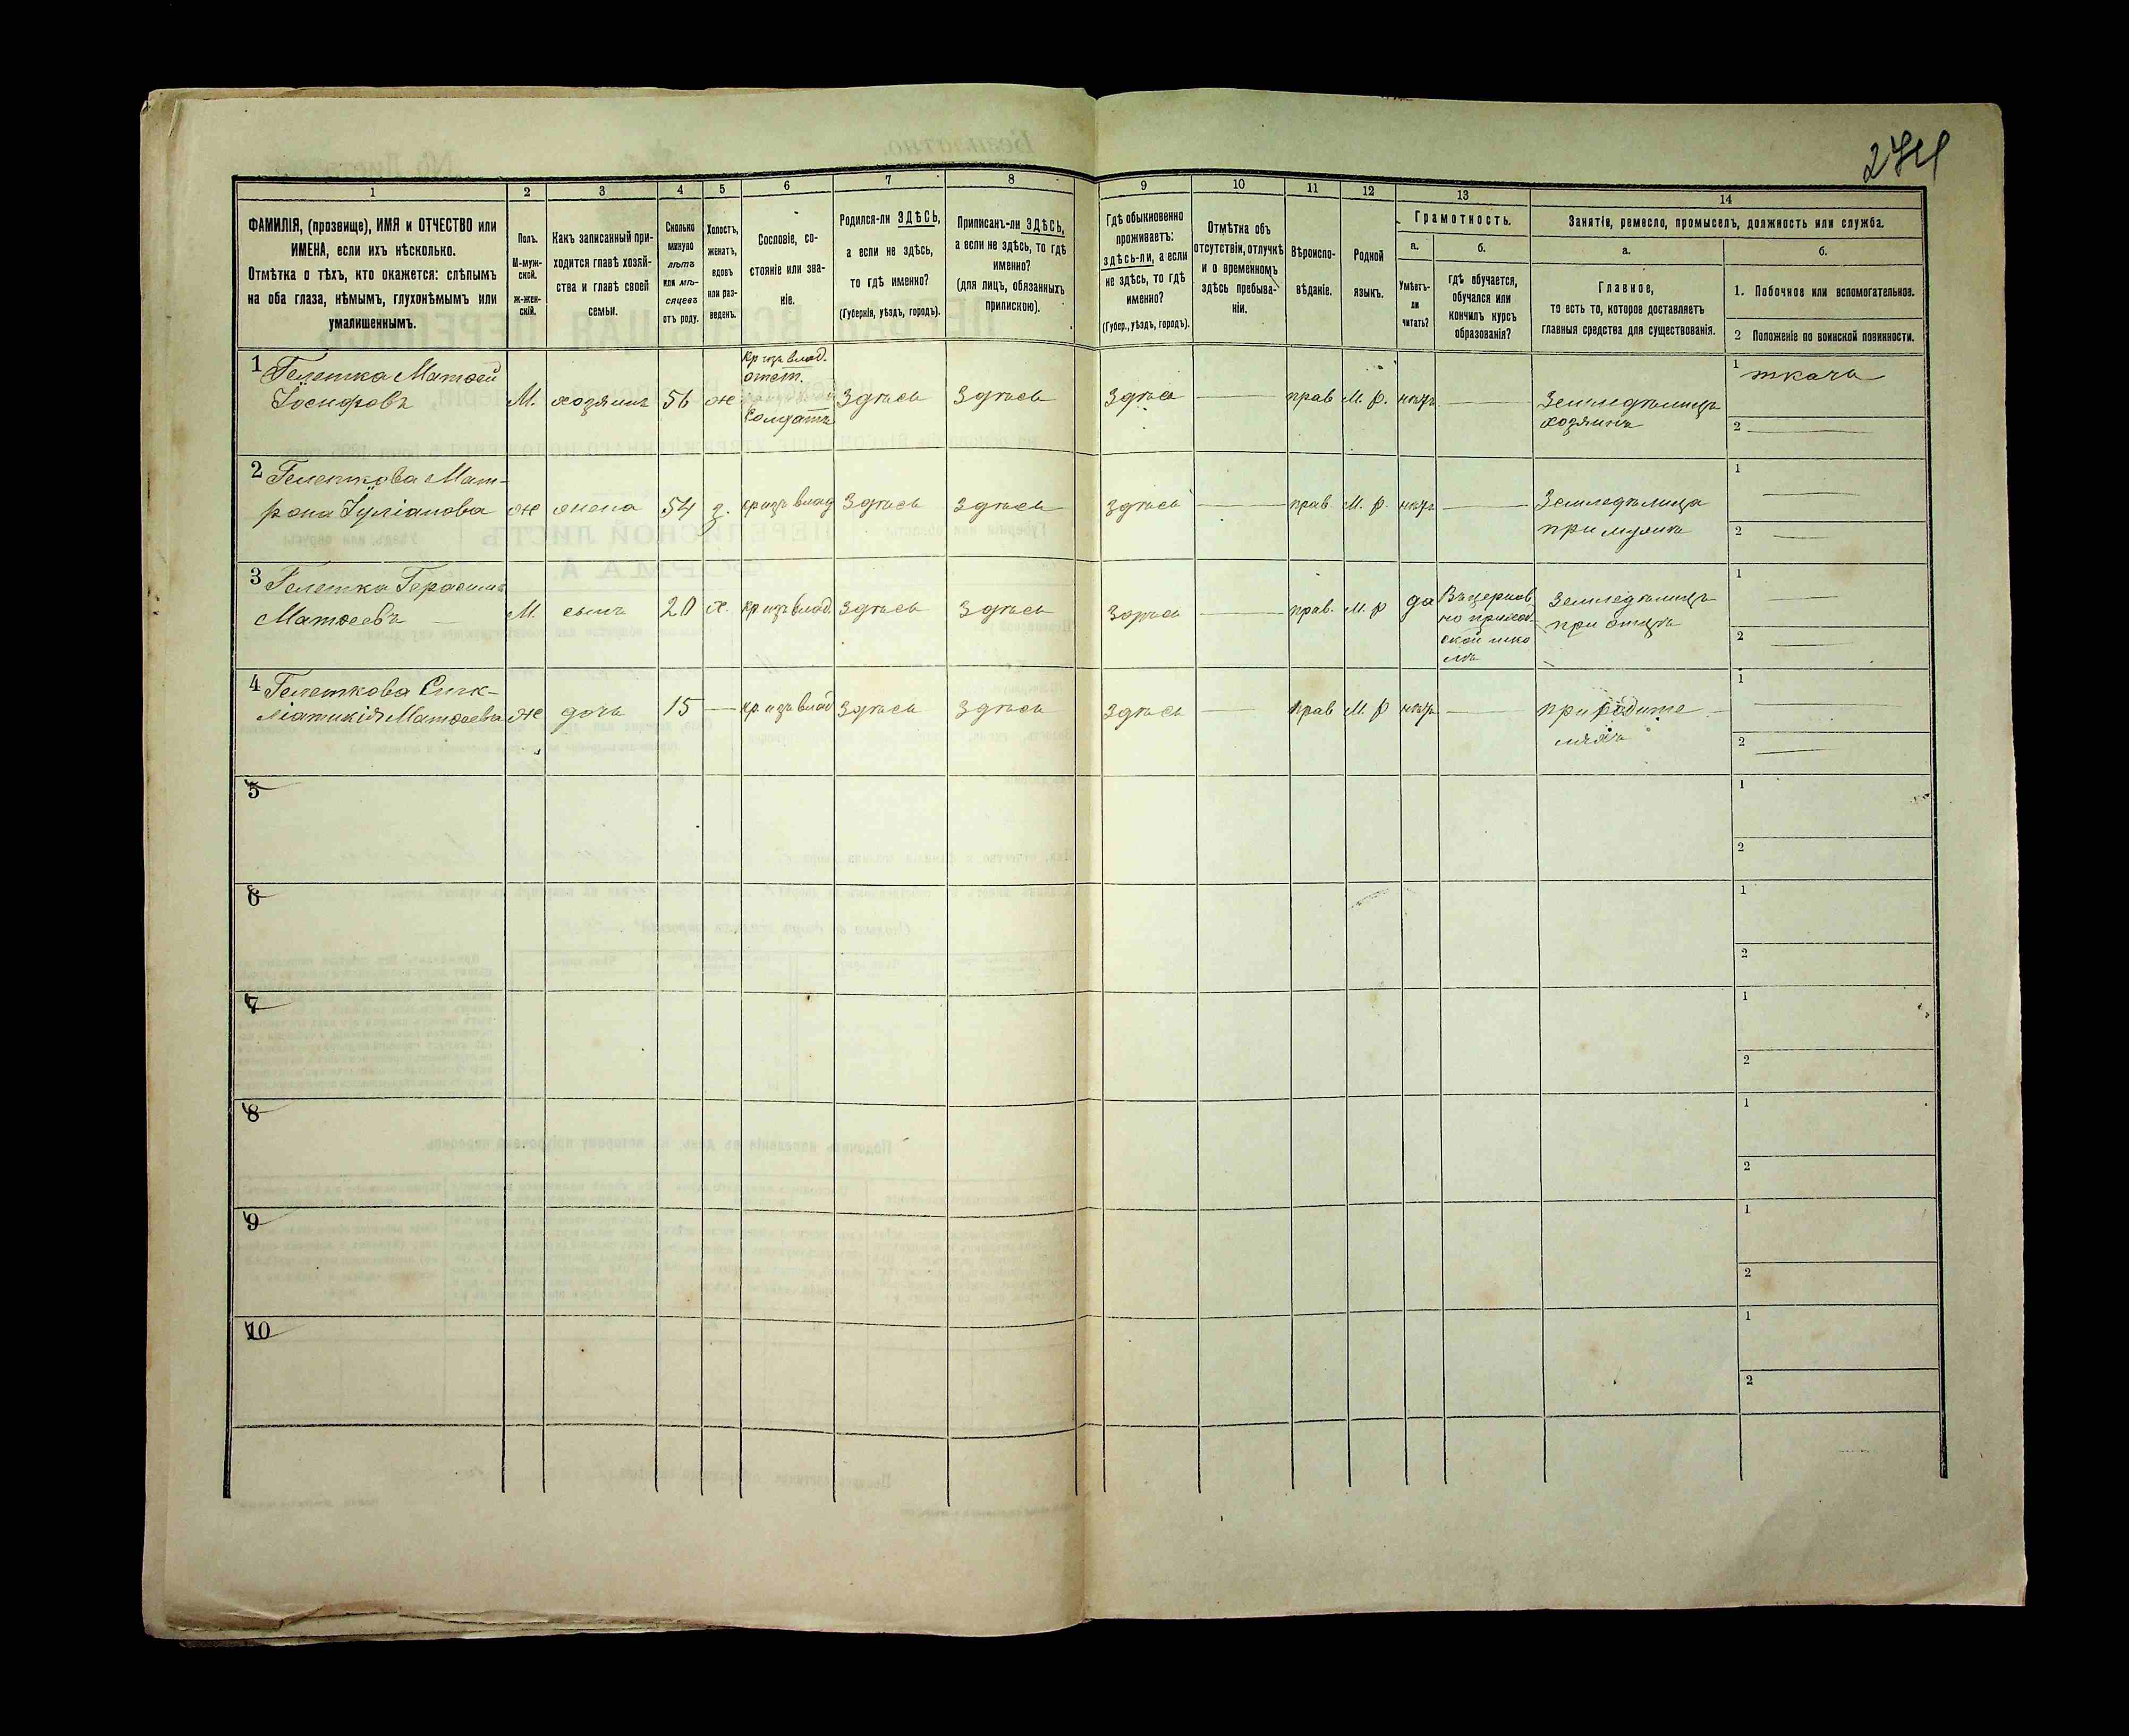 274
1 2 3 4 5 6 7 8 9 10 11 12 13 14
ФАМИЛІЯ, (прозвище), ИМЯ и ОТЧЕСТВО или
ИМЕНА, если ихъ нѣсколько.
Отмѣтка о тѣхъ, кто окажется: слѣпымъ
на оба глаза, нѣмымъ, глухонѣмымъ или
умалишеннымъ.
Полъ.
М-муж-
ской.
ж-жен-
скій.
Какъ записанный при-
ходится главѣ хозяй-
ства и главѣ своей
семьи.
Сколько
минуло
лѣтъ
или мѣ-
сяцевъ
отъ роду.
Холостъ,
женатъ,
вдовъ
или раз-
веденъ.
Сословіе, со-
стояніе или зва-
ніе.
Родился-ли ЗДѢСЬ,
а если не здѣсь,
то гдѣ именно?
(Губернія, уѣздъ, городъ).
Приписанъ-ли ЗДѢСЬ,
а если не здѣсь, то гдѣ
именно?
(для лицъ, обязанныхъ
припискою).
Гдѣ обыкновенно
проживаетъ:
здѣсь-ли, а если
не здѣсь, то гдѣ
именно?
(Губер., уѣздъ, городъ).
Отмѣтка объ
отсутствіи, отлучкѣ
и о временномъ
здѣсь пребыва-
ніи.
Вѣроиспо-
вѣданіе.
Родной
языкъ.
Грамотность.
а.
Умѣетъ-
ли
читать?
б.
гдѣ обучается,
обучался или
кончилъ курсъ
образованія?
Занятіе, ремесло, промыселъ, должность или служба.
а.
Главное,
то есть то, которое доставляетъ
главныя средства для существованія.
б.
1. Побочное или вспомогательное.
2 Положеніе по воинской повинности.
1 Гелетка Матѳей
Іосифовъ
М.
хозяинъ
56
ж
кр изъ влад.
отст.
Солдатъ
Здѣсь
Здѣсь
Здѣсь
прав
М. р.
нѣтъ
Земледѣлецъ
хозяинъ
1 ткачъ
2
2 Гелеткова Мат-
рона Іуліанова
ж
жена
54
з.
кр изъ влад
Здѣсь
Здѣсь
Здѣсь
прав
М. р.
нѣтъ
Земледѣлица
при мужѣ
1
2
3 Гелетка Герасимъ
Матѳеевъ
М.
сынъ
20
х.
кр изъ влад
Здѣсь
Здѣсь
Здѣсь
прав.
М. р
да
Въ церков
но приход
ской шко
лѣ
Земледѣлецъ
при отцѣ
1
2
4 Гелеткова Синк-
літикія Матѳеева
ж
дочь
15
кр изъ влад
Здѣсь
Здѣсь
Здѣсь
прав
М. р
нѣтъ
при родите
ляхъ
1
2
5
1
2
6
1
2
7
1
2
8
1
2
9
1
2
10
1
2